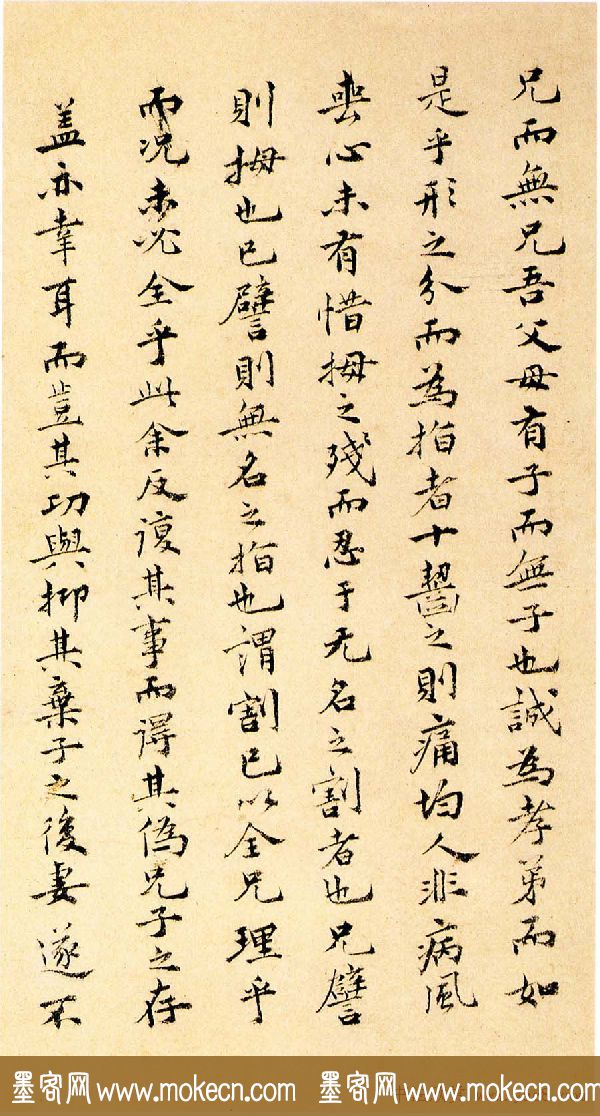 兄而無兄吾父母有子而無子也誠為孝弟而如
是乎形之分而為指者十齧之則痛均人非病風
喪心未有惜拇之殘而忍于无名之割者也兄譬
則拇也已譬則無名之指也謂割已以全兄理乎
而况未必全乎此余反復其事而得其偽兄子之存
蓋亦幸耳而豈其功與抑其棄子之後妻遂不
墨客网 www.mokecn.com 墨客网 www.mokecn.com